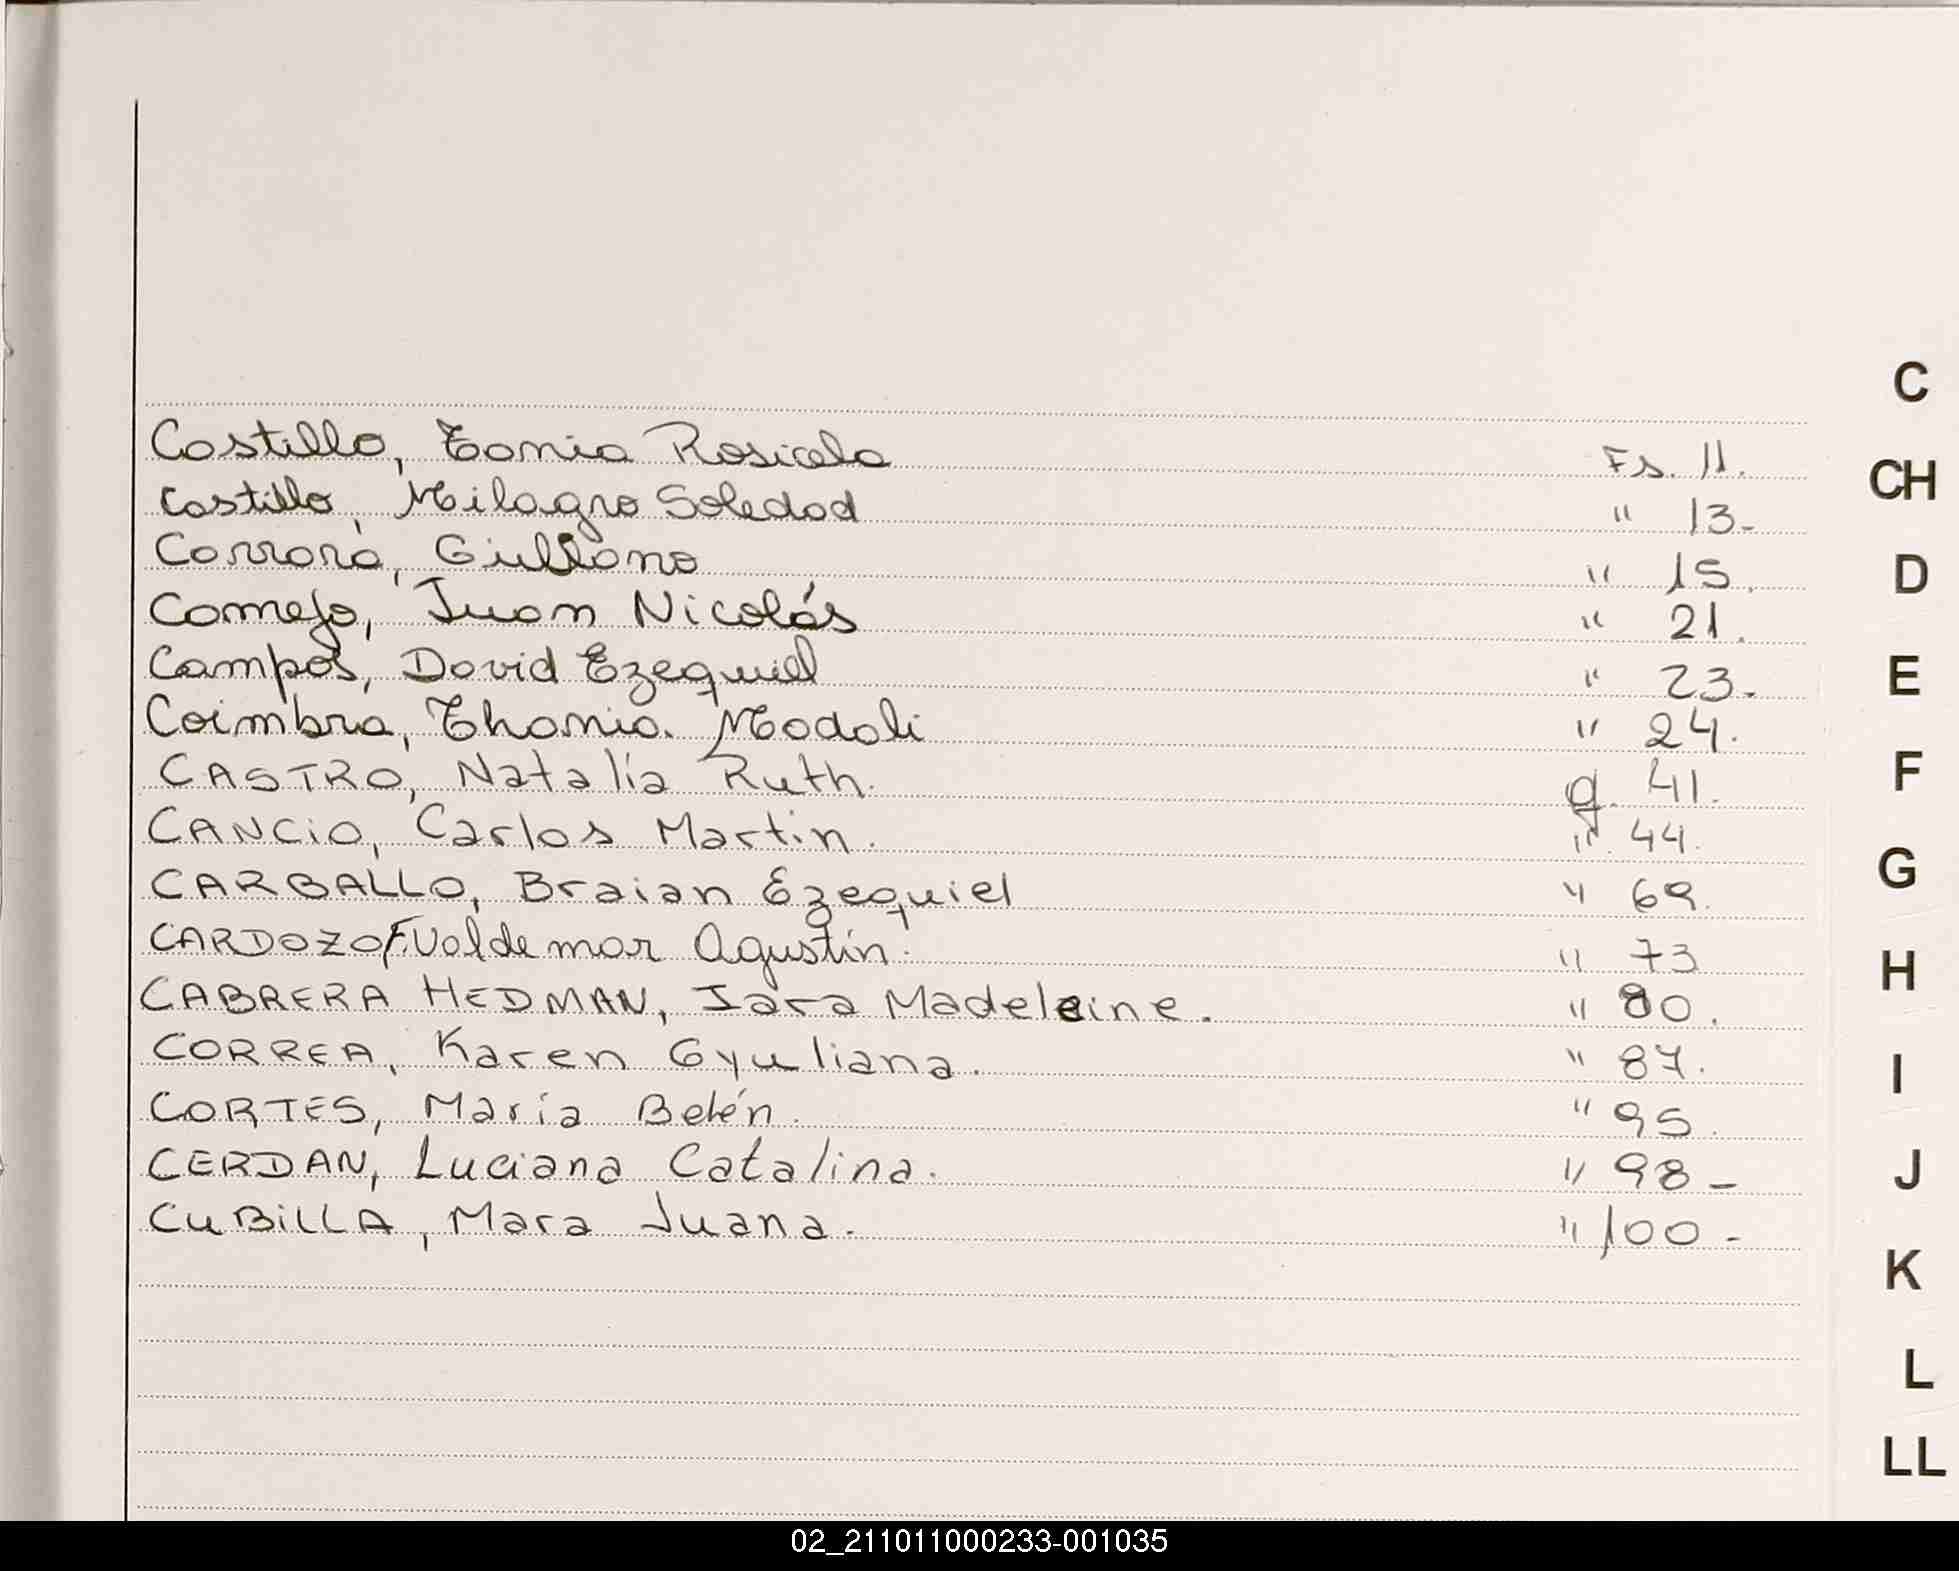 Castillo, Tania Rosicela Fs. 11.
Castillo, Milagro Soledad " 13-
Carrara, Giuliano " 15.
Cornejo, Juan Nicolás " 21.
Campos, David Ezequiel " 23.
Coimbra, Thania Madali " 24.
CASTRO, Natalia Ruth. 41.
CANCiO, Carlos Martin. " 44.
CARBALLO, Braian Ezequiel " 69.
CARDOZO F. Valdemar Agustín. " 73
CABRERA HEDMAN, Iara Madeleine. " 80.
CORREA, Karen Gyuliana. " 87.
CORTES, María Belén. " 95.
CERDAN, Luciana Catalina. " 98-
CUBiLLA, Mara Juana. " 100-
C
CH
D
E
F
G
H
I
J
K
L
LL
02_211011000233-001035